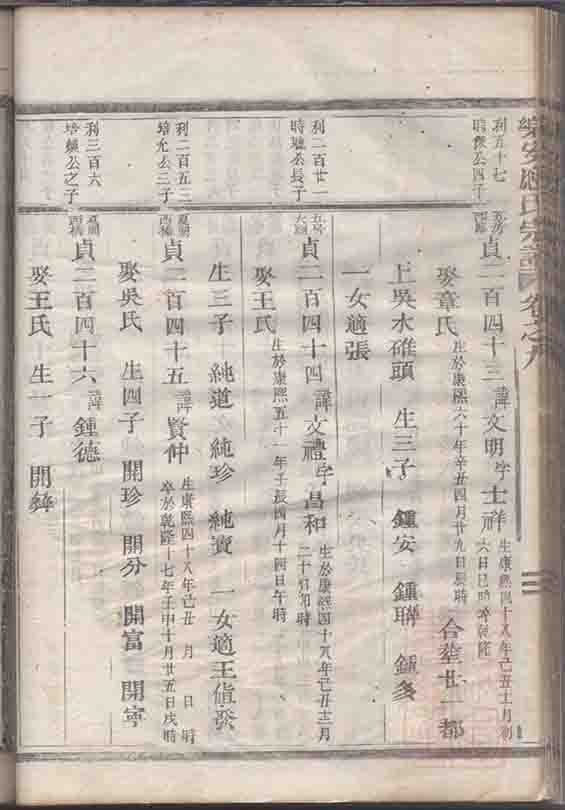 樂安應氏宗譜 卷之九
利五十七
時傑公四子
貞二百四十三 諱文明字士祥 生康熙四十八年己丑十一月初
六日巳時卒乾隆
娶章氏 生於康熙六十年辛丑四月廿九日辰時 合塟廿一都
上吳水碓頭 生三子 鍾安 鍾聯 鍾多
一女適張
利二百廿一
時塘公長子
貞二百四十四 諱文禮字昌和 生於康熙四十八年己丑十二月
二十日酉時
娶王氏 生於康熙五十一年壬辰四月十四日午時
生三子 純道 純珍 純寶 一女適王值發
利二百五三
培允公三子
貞二百四十五 諱賢仲 生康熙四十八年己丑 月 日 時
卒於乾隆十七年壬申十月廿五日戌時
娶吳氏 生四子 開珍 開分 開富 開寧
利三百六
培公之子
貞二百四十六 諱鍾德
娶王氏 生一子 開彝